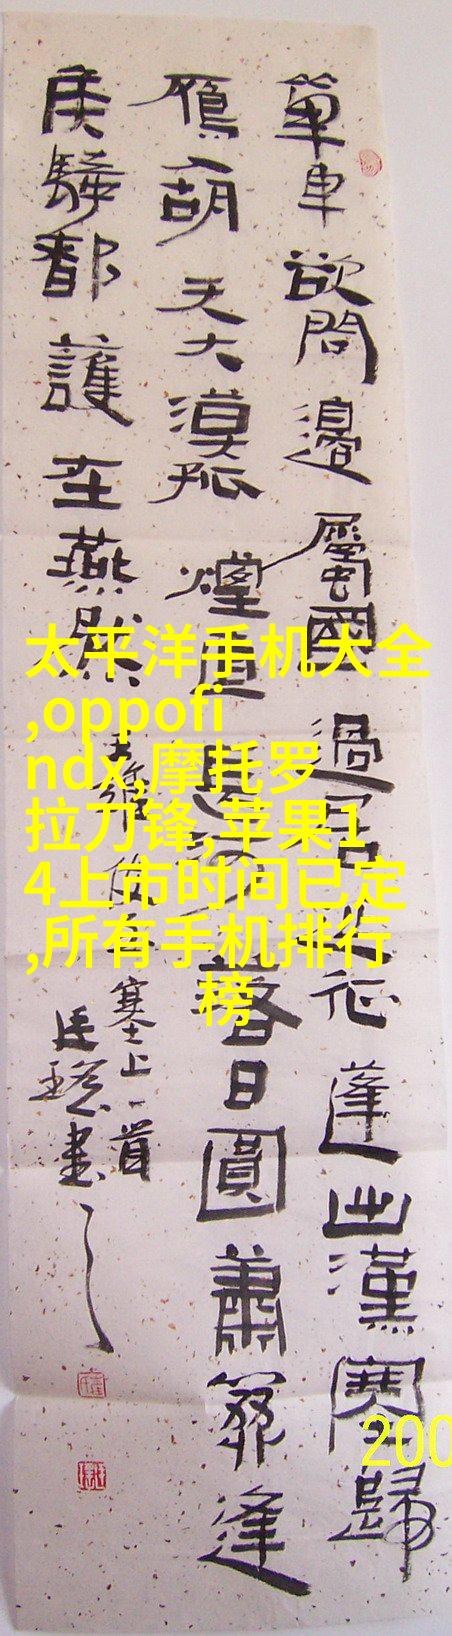 單車欲問邊屬國過居延征蓬出漢塞歸
雁入胡天大漠孤煙直長河落日圓蕭關逢
候騎都護在燕然
王維使至塞上一首
書
太平洋手机大全
,oppofi
ndx,摩托罗
拉刀锋,苹果1
4上市时间已定
,所有手机排行
榜
200